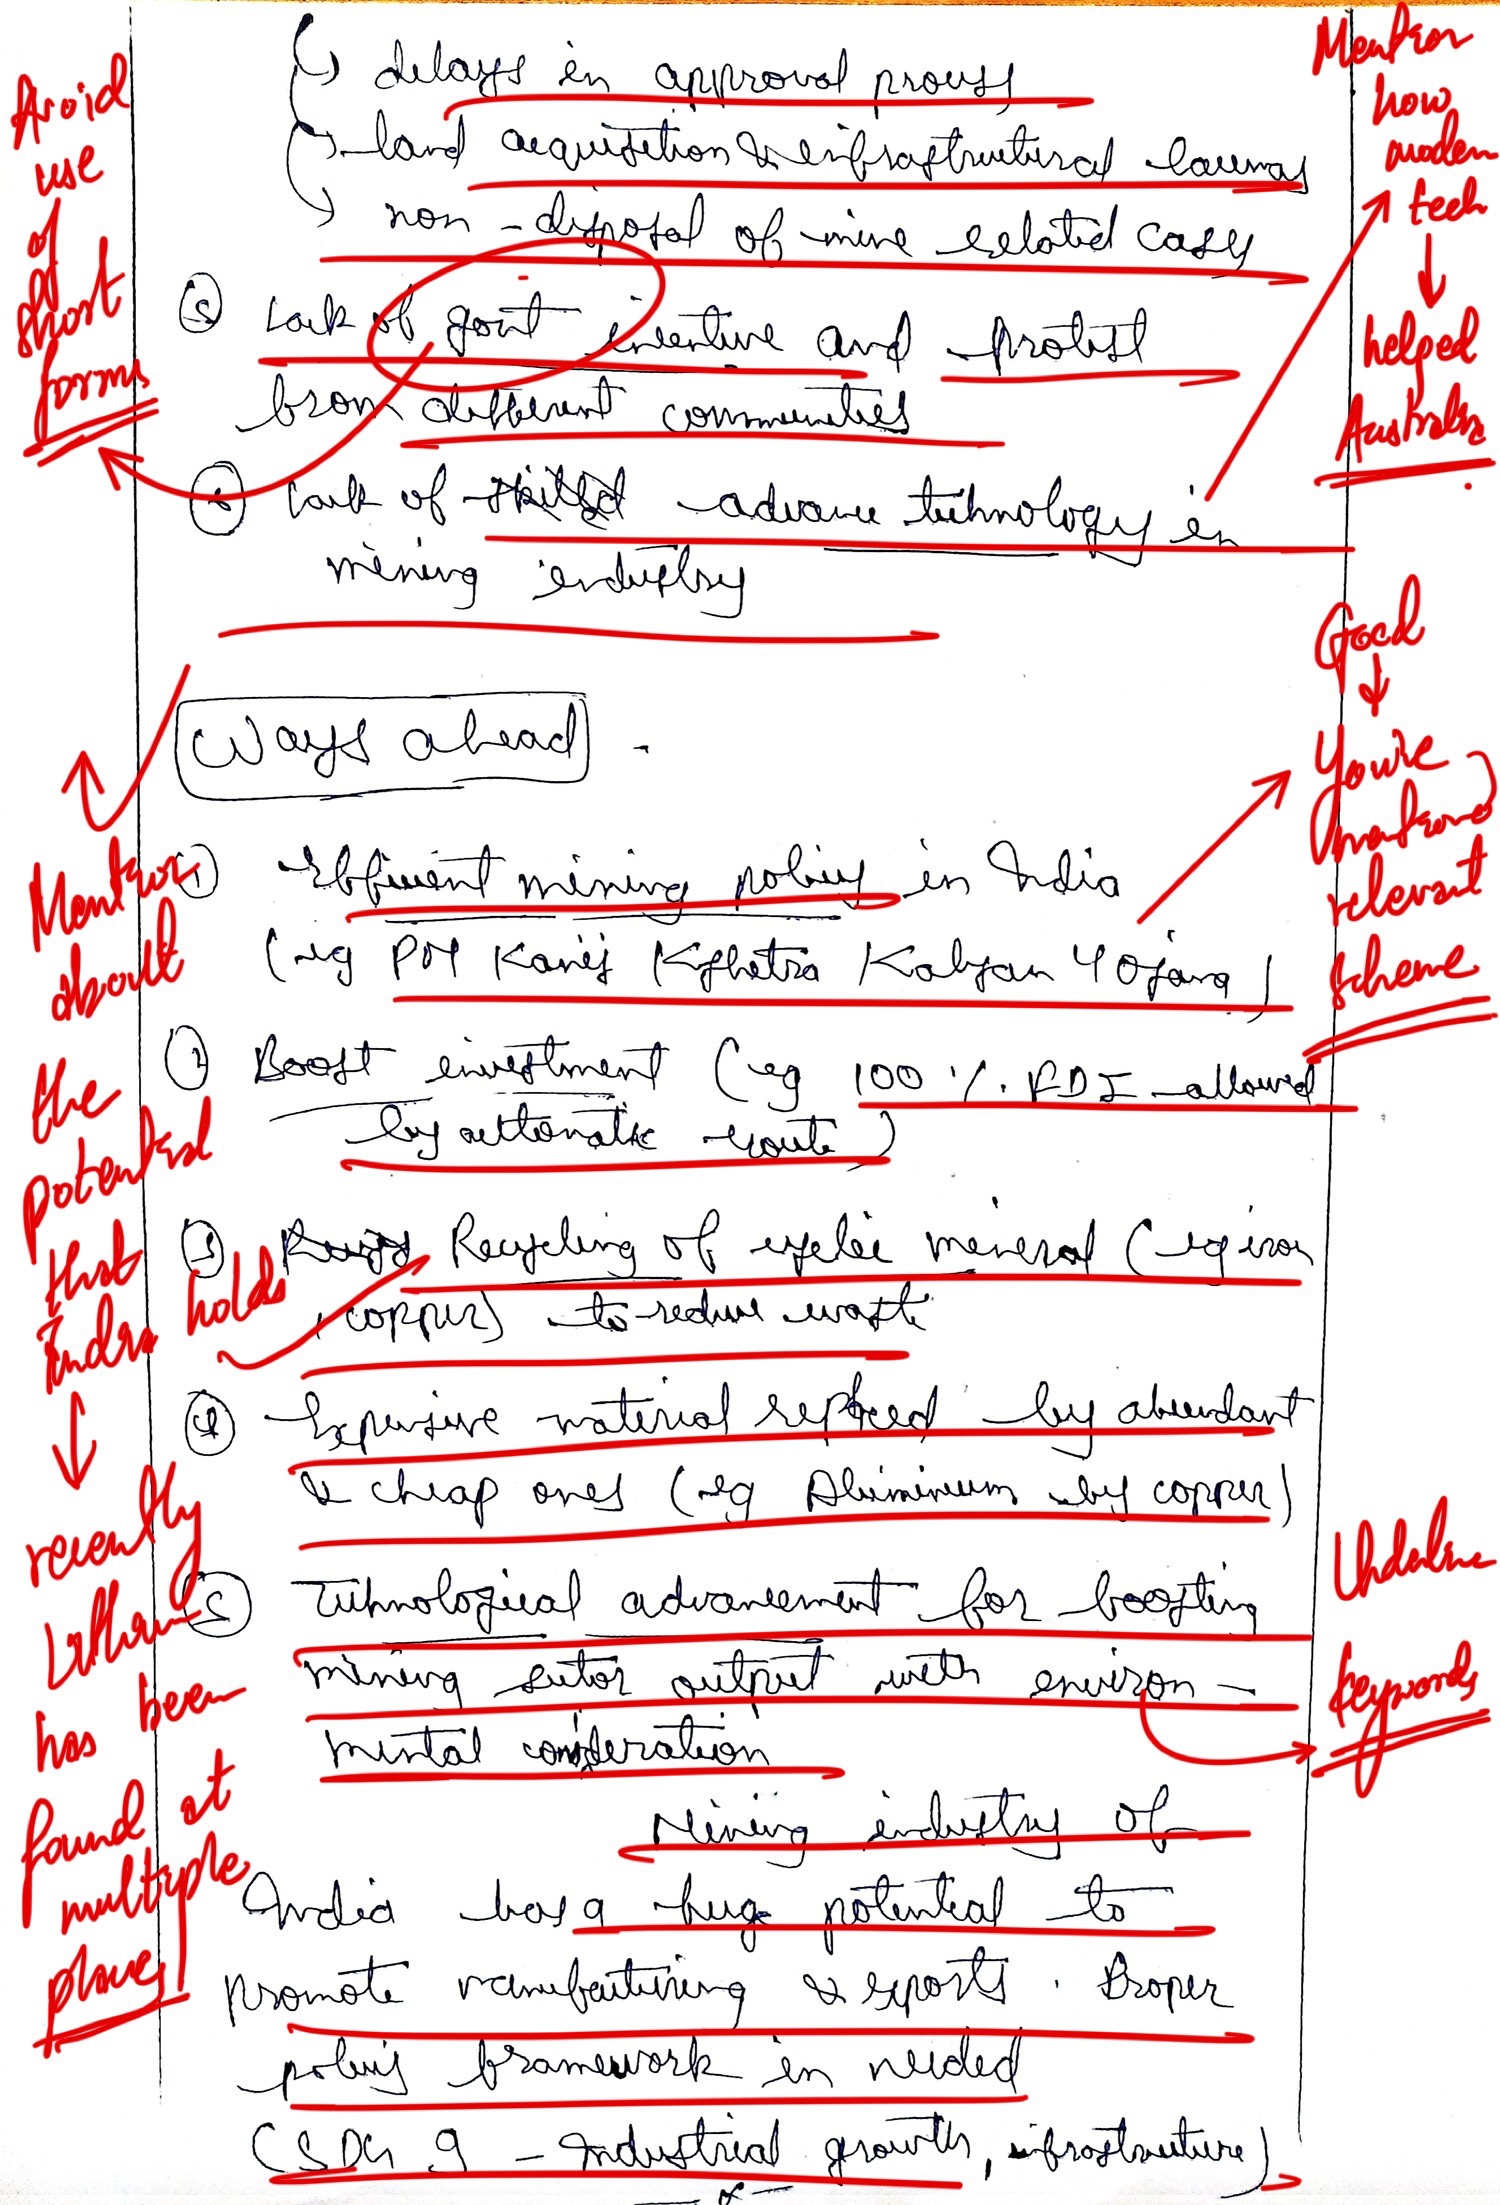 delays in approval process
land acquisition & infrastructural
non-disposal of mine related cases
⑤ Lack of govt incentive and protest
from different communities
⑥ Lack of advance technology in
mining industry
Ways ahead
① Efficient mining policy in India
(eg PM Kanij Kshetra Kalyan Yojana)
② Boost investment (eg 100 % FDI allowed
by automatic route)
③ Recycling of mineral (eg iron
, copper) to reduce waste
④ Expensive material replaced by abundant
& cheap ones (eg Aluminium by copper)
⑤ Technological advancement for boosting
mining sector output with environ-
mental consideration
Mining industry of
India has a huge potential to
promote manufacturing & exports. Proper
policy framework in needed
(SDG 9 - Industrial growth, infrastructure)
Avoid
use
of
short
forms
Mention
about
the
potential
that
India holds
recently
Lithium
has been
found at
multiple
places
Mention
how
modern
tech
helped
Australia
Good
You've
mentioned
relevant
scheme
Underline
keywords